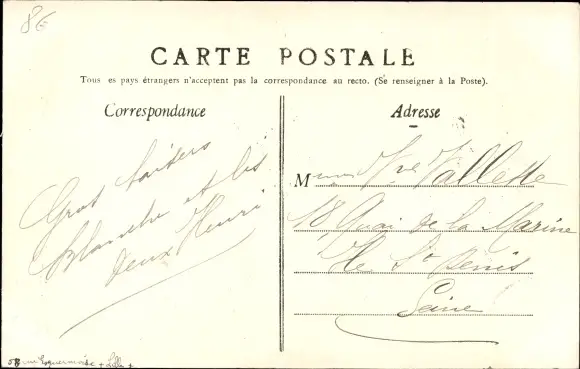 8€
CARTE POSTALE
Tous es pays étrangers n'acceptent pas la correspondance au recto. (Se renseigner à la Poste).
Correspondance
Adresse
Gros baisers
Blanche et les
deux Henri
Mme Vve Vallette
18, Quai de la Marine
Ile St Denis
Seine
58 rue Esquermoise + Lille +